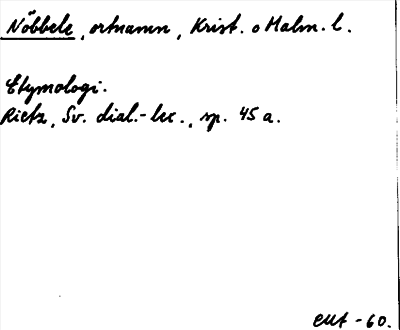 Nöbbele, ortnamn, Krist. o Malm. l.
Etymologi.
Rietz, Sv. dial.-lex., sp. 45 a.